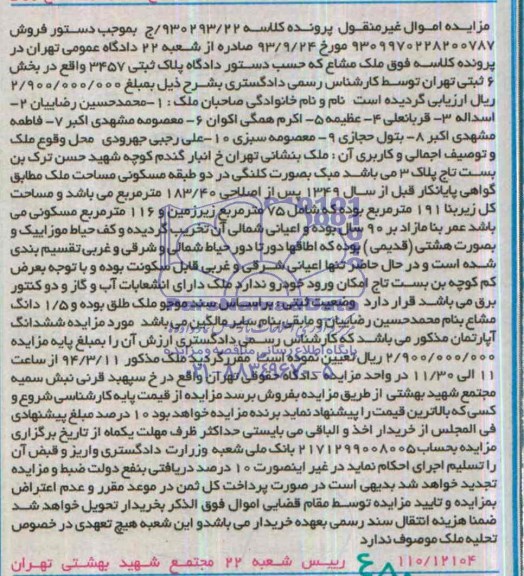 مزایده اموال غیرمنقول پرونده کلاسه ۹۳۰۲۹۳/۲۲/ج بموجب دستور فروش
۹۳۰۹۹۷۰۲۲۸۲۰۰۷۸۷ مورخ ۹۳/۹/۲۴ صادره از شعبه ۲۲ دادگاه عمومی تهران در
پرونده کلاسه فوق ملک مشاع که حسب دستور دادگاه پلاک ثبتی ۳۴۵۷ واقع در بخش
۶ ثبتی تهران توسط کارشناس رسمی دادگستری بشرح ذیل بمبلغ ۲/۹۰۰/۰۰۰/۰۰۰
ریال ارزیابی گردیده است نام و نام خانوادگی صاحبان ملک : ۱-محمدحسین رضاییان ۲-
اسداله ۳- قربانعلی ۴- عظیمه ۵- اکرم همگی اکوان ۶- معصومه مشهدی اکبر ۷- فاطمه
مشهدی اکبر ۸- بتول حجازی ۹- معصومه سبزی ۱۰-علی رجبی جهرودی محل وقوع ملک
و توصیف اجمالی و کاربری آن : ملک بنشانی تهران خ انبار گندم کوچه شهید حسن ترک بن
بست تاج پلاک ۳ می باشد مبک بصورت کلنگی در دو طبقه مسکونی مساحت ملک مطابق
گواهی پایانکار قبل از سال ۱۳۴۹ پس از اصلاحی ۱۸۳/۴۰ مترمربع می باشد و مساحت
کل زیربنا ۱۹۱ مترمربع بوده که شامل ۷۵ مترمربع زیرزمین و ۱۱۶ مترمربع مسکونی می
باشد عمر بنا مازاد بر ۹۰ سال بوده و اعیانی شمالی آن تخریب گردیده و کف حیاط موزاییک و
بصورت هشتی (قدیمی) بوده که اطاقها دور تا دور حیاط شمالی و شرقی و غربی تقسیم بندی
شده است و در حال حاضر تنها اعیانی شرقی و غربی قابل سکونت بوده و با توجه بعرض
کم کوچه بن بست تاج امکان ورود خودرو ندارد ملک دارای انشعابات آب و گاز و دو کنتور
برق می باشد قرار دارد وضعیت ثبتی : براساس سند موجو ملک طلق بوده و ۱/۵ دانگ
مشاع بنام محمدحسین رضاییان و مابقی بنام سایر مالگین می باشد مورد مزایده ششدانگ
آپارتمان مذکور می باشد که کارشناس رسمی دادگستری ارزش آن را بمبلغ پایه مزایده
۲/۹۰۰/۰۰۰/۰۰۰ ریال تعیین نموده است مقرر گردید ملک مذکور ۹۴/۳/۱۱ از ساعت
۱۱ الی ۱۱/۳۰ در واحد مزایده دادگاه حقوقی تهران واقع در خ سپهبد قرنی نبش سمیه
مجتمع شهید بهشتی از طریق مزایده بفروش برسد مزایده از قیمت پایه کارشناسی شروع و
کسی که بالاترین قیمت را پیشنهاد نماید برنده مزایده خواهد بود ۱۰ درصد مبلغ پیشنهادی
فی المجلس از خریدار اخذ و الباقی می بایستی حداکثر ظرف مهلت یکماه از تاریخ برگزاری
مزایده بحساب ۲۱۷۱۲۹۹۰۰۸۰۰۵ بانک ملی شعبه وزرارت دادگستری واریز و قبض آن
را تسلیم اجرای احکام نماید در غیر اینصورت ۱۰ درصد دریافتی بنفع دولت ضبط و مزایده
تجدید خواهد شد بدیهی است در صورت پرداخت کل ثمن در موعد مقرر و عدم اعتراض
بمزایده و تایید مزایده توسط مقام قضایی اموال فوق الذکر بخریدار تحویل خواهد شد
ضمنا هزینه انتقال سند رسمی بعهده خریدار می باشدو این شعبه هیچ تعهدی در خصوص
تحلیه ملک موصوف ندارد
۱۱۰/۱۲۱۰۴ رییس شعبه ۲۲ مجتمع شهید بهشتی تهران
پایگاه اطلاع رسانی مناقصه و مزایده
۰۲۱-۸۸۳۴۹۶۷۰-۵